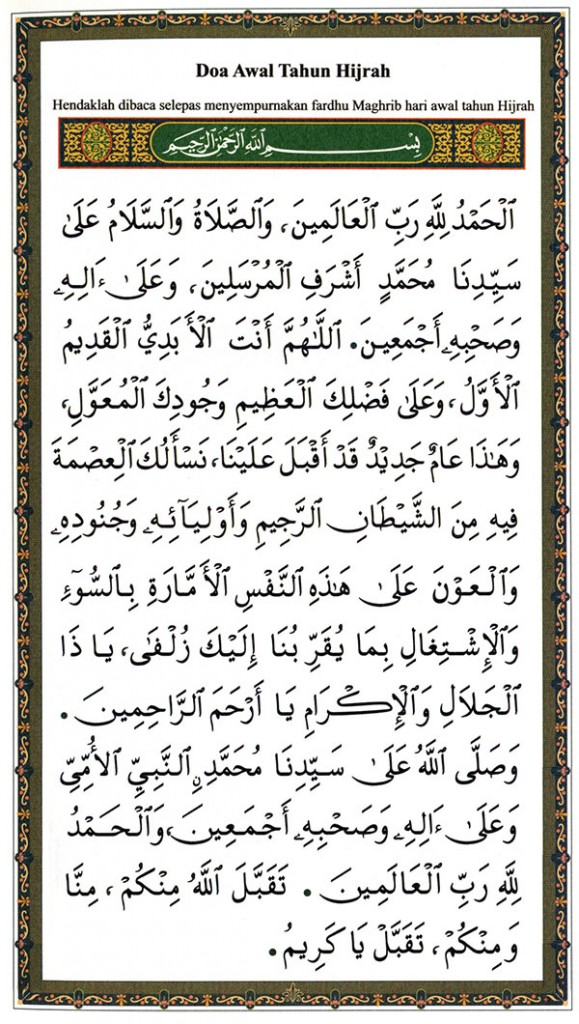 Doa Awal Tahun Hijrah
Hendaklah dibaca selepas menyempurnakan fardhu Maghrib hari awal tahun Hijrah
بِسْمِ اللَّهِ الرَّحْمَٰنِ الرَّحِيمِ
ٱلْحَمْدُ لِلَّهِ رَبِّ ٱلْعَالَمِينَ، وَٱلصَّلَاةُ وَٱلسَّلَامُ عَلَىٰ
سَيِّدِنَا مُحَمَّدٍ أَشْرَفِ ٱلْمُرْسَلِينَ، وَعَلَىٰ ءَالِهِۦ
وَصَحْبِهِۦ أَجْمَعِينَ. اللَّهُمَّ أَنْتَ ٱلْأَبَدِيُّ ٱلْقَدِيمُ
ٱلْأَوَّلُ، وَعَلَىٰ فَضْلِكَ ٱلْعَظِيمِ وَجُودِكَ ٱلْمُعَوَّلِ،
وَهَٰذَا عَامٌ جَدِيدٌ قَدْ أَقْبَلَ عَلَيْنَا، نَسْأَلُكَ ٱلْعِصْمَةَ
فِيهِ مِنَ الشَّيْطَانِ ٱلرَّجِيمِ وَأَوْلِيَآئِهِۦ وَجُنُودِهِۦ
وَٱلْعَوْنَ عَلَىٰ هَٰذِهِ ٱلنَّفْسِ ٱلْأَمَّارَةِ بِٱلسُّوٓءِ
وَٱلْإِشْتِغَالِ بِمَا يُقَرِّبُنَا إِلَيْكَ زُلْفَىٰ، يَا ذَا
ٱلْجَلَالِ وَٱلْإِكْرَامِ يَا أَرْحَمَ ٱلرَّاحِمِينَ.
وَصَلَّى ٱللَّهُ عَلَىٰ سَيِّدِنَا مُحَمَّدٍ ٱلنَّبِيِّ ٱلْأُمِّيِّ
وَعَلَىٰ ءَالِهِۦ وَصَحْبِهِۦ أَجْمَعِينَ، وَٱلْحَمْدُ
لِلَّهِ رَبِّ ٱلْعَالَمِينَ. تَقَبَّلَ ٱللَّهُ مِنْكُمْ، مِنَّا
وَمِنْكُمْ، تَقَبَّلْ يَا كَرِيمُ.